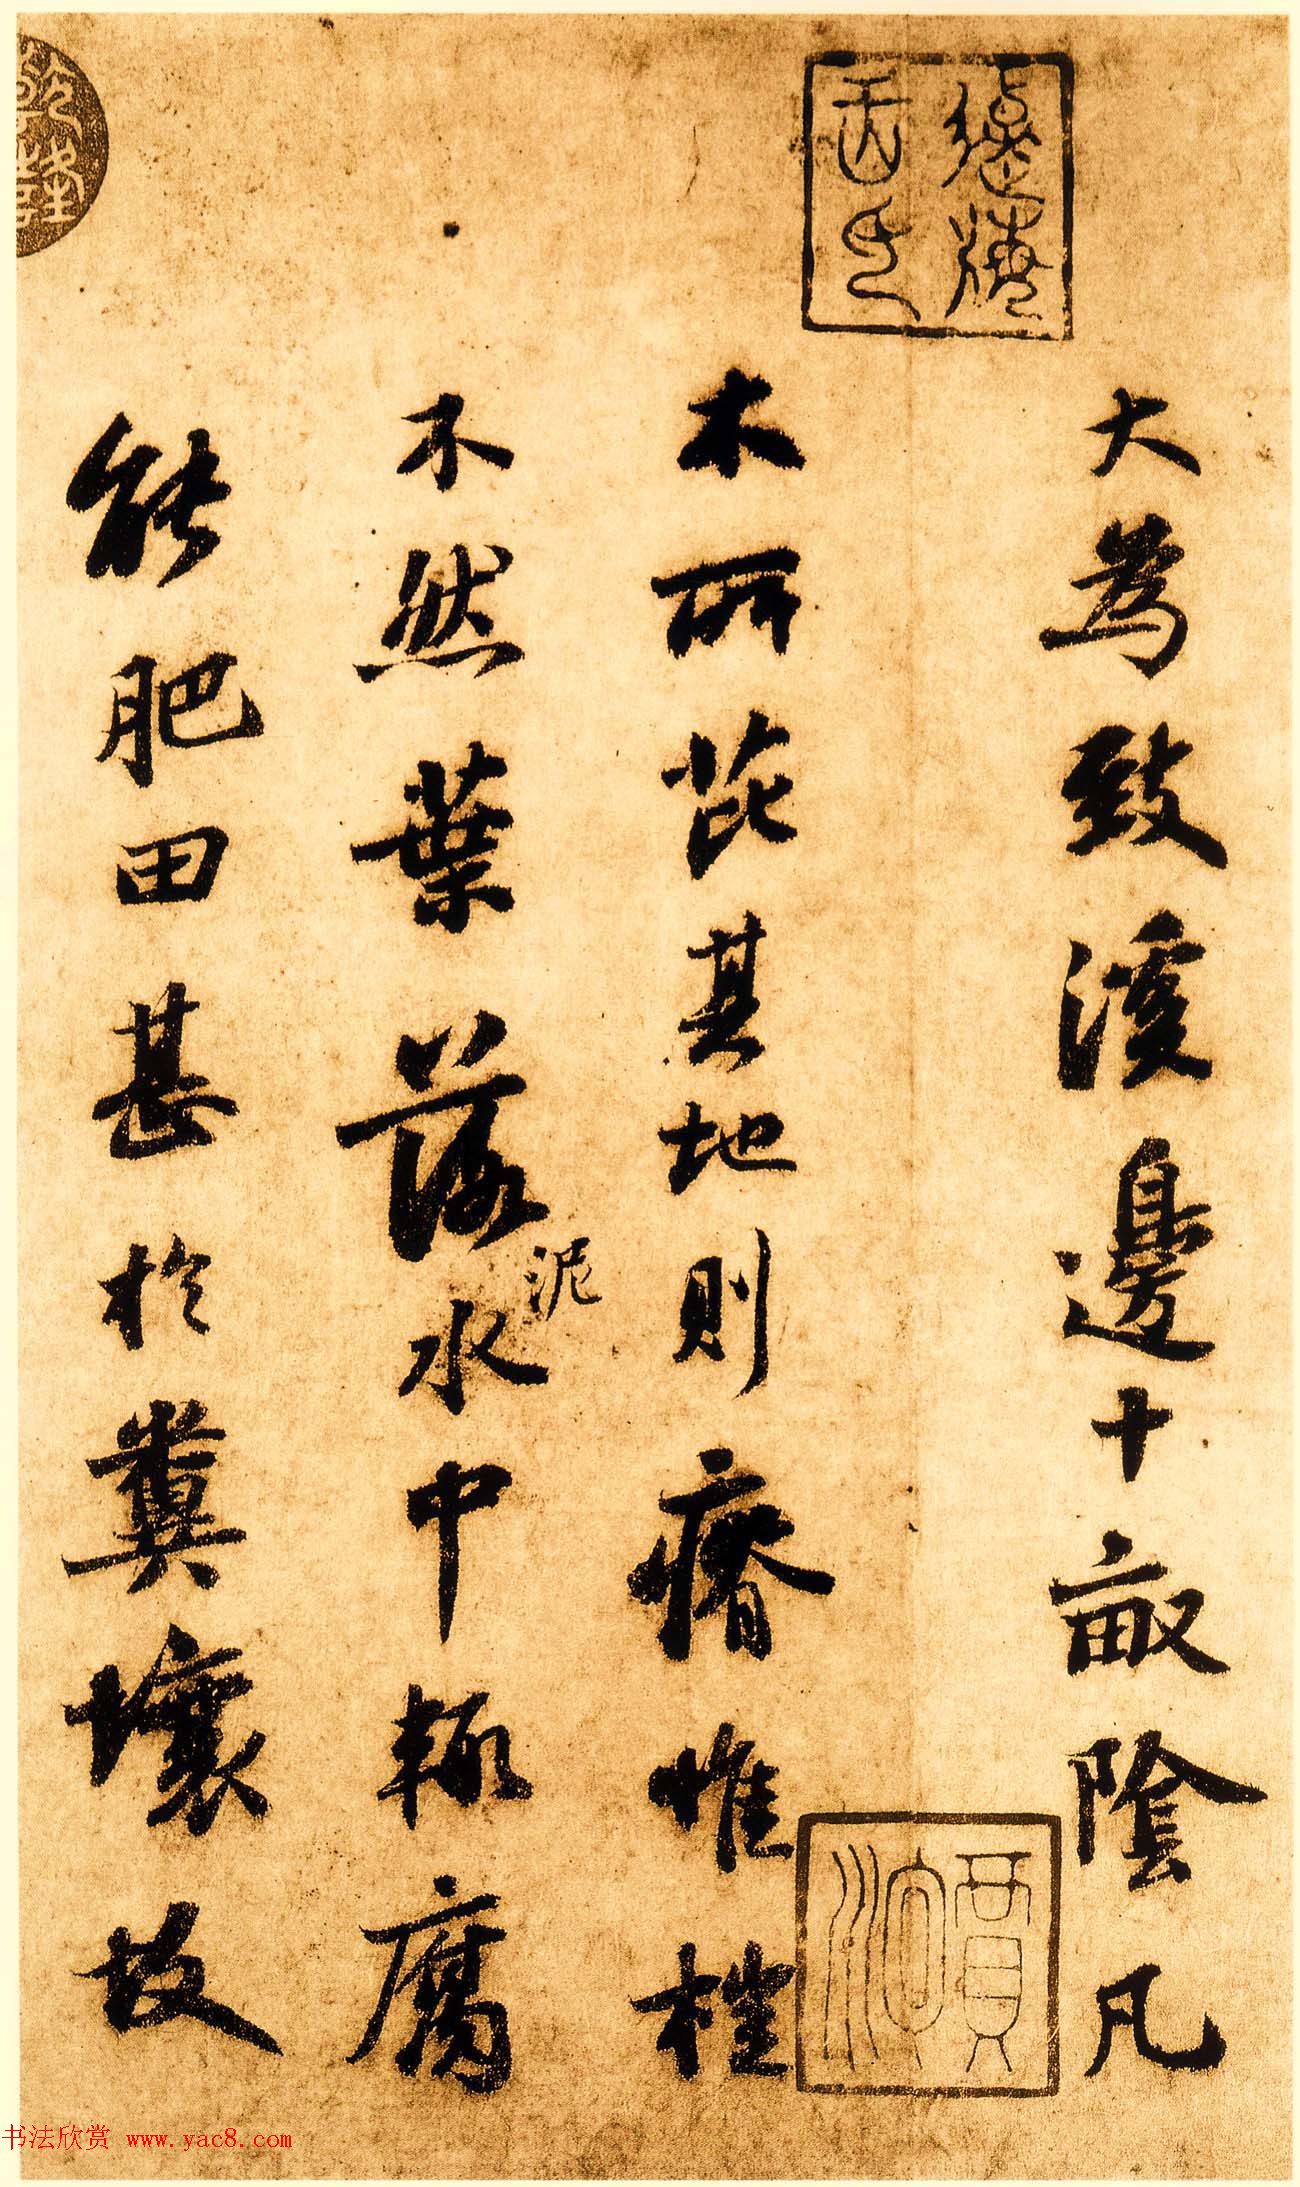 大為致溪邊十畝陰凡
木所芘其地則瘠惟榿
不然葉落泥水中輒腐
能肥田甚於糞壤故
书法欣赏 www.yac8.com